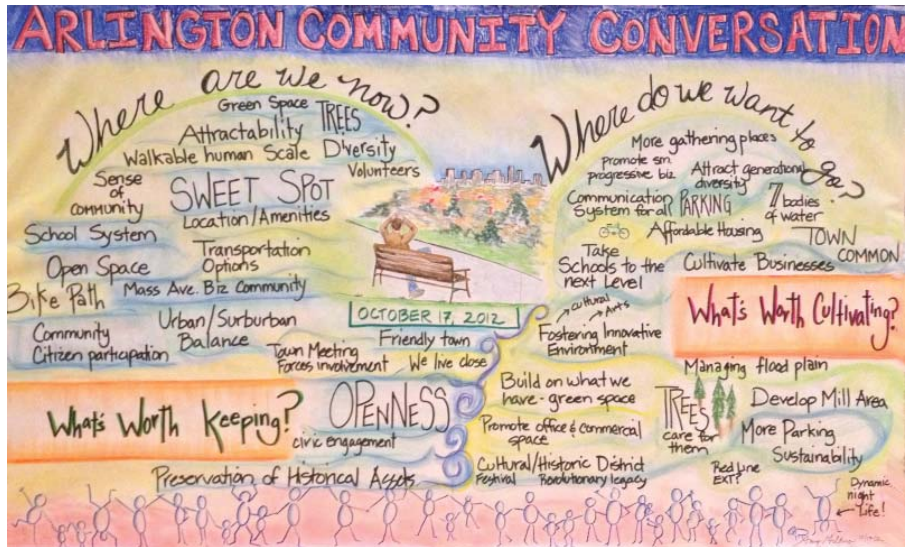 ARLINGTON COMMUNITY CONVERSATION
Where are we now?
Green Space
TREES
Attractability
Diversity
Walkable human Scale
Volunteers
Sense
of
COMMUNITY
SWEET SPOT
Location/Amenities
School System
Transportation
Options
Open Space
Mass Ave. Biz Community
Bike Path
Urban/Surburban
Balance
Community
Citizen participation
Friendly town
Town Meeting
Forces involvement
We live close
OCTOBER 17, 2012
What's Worth Keeping?
OPENNESS
civic engagement
Preservation of Historical Assets
Where do we want to go?
More gathering places
promote sm.
progressive biz.
Attract generational
diversity
Communication
System for all
PARKING
7 bodies
of water
Affordable Housing
TOWN
COMMON
Take
Schools to the
next Level
Cultivate Businesses
cultural
Arts
Fostering Innovative
Environment
What's Worth Cultivating?
Managing flood plain
Build on what we
have - green space
TREES
care for
them
Develop Mill Area
Promote office & commercial
space
More Parking
Sustainability
Cultural/Historic District
Festival Revolutionary legacy
Red Line
EXT?
Dynamic
night
Life!